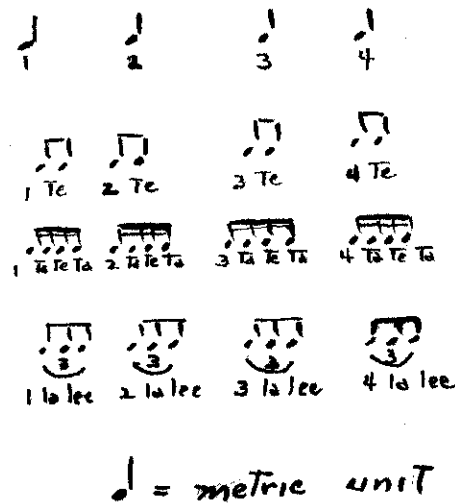 1 2 3 4
1 Te 2 Te 3 Te 4 Te
1 Ta Te Ta 2 Ta Te Ta 3 Ta Te Ta 4 Ta Te Ta
3 3 3 3
1 la lee 2 la lee 3 la lee 4 la lee
= metric unit